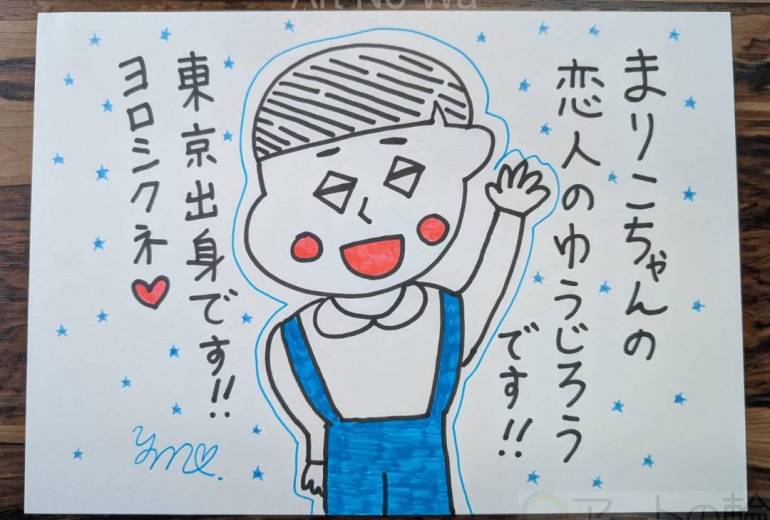 まりこちゃんの
恋人のゆうじろう
です!!
東京出身です!!
ヨロシクネ♥
Art No Wa
アートの輪